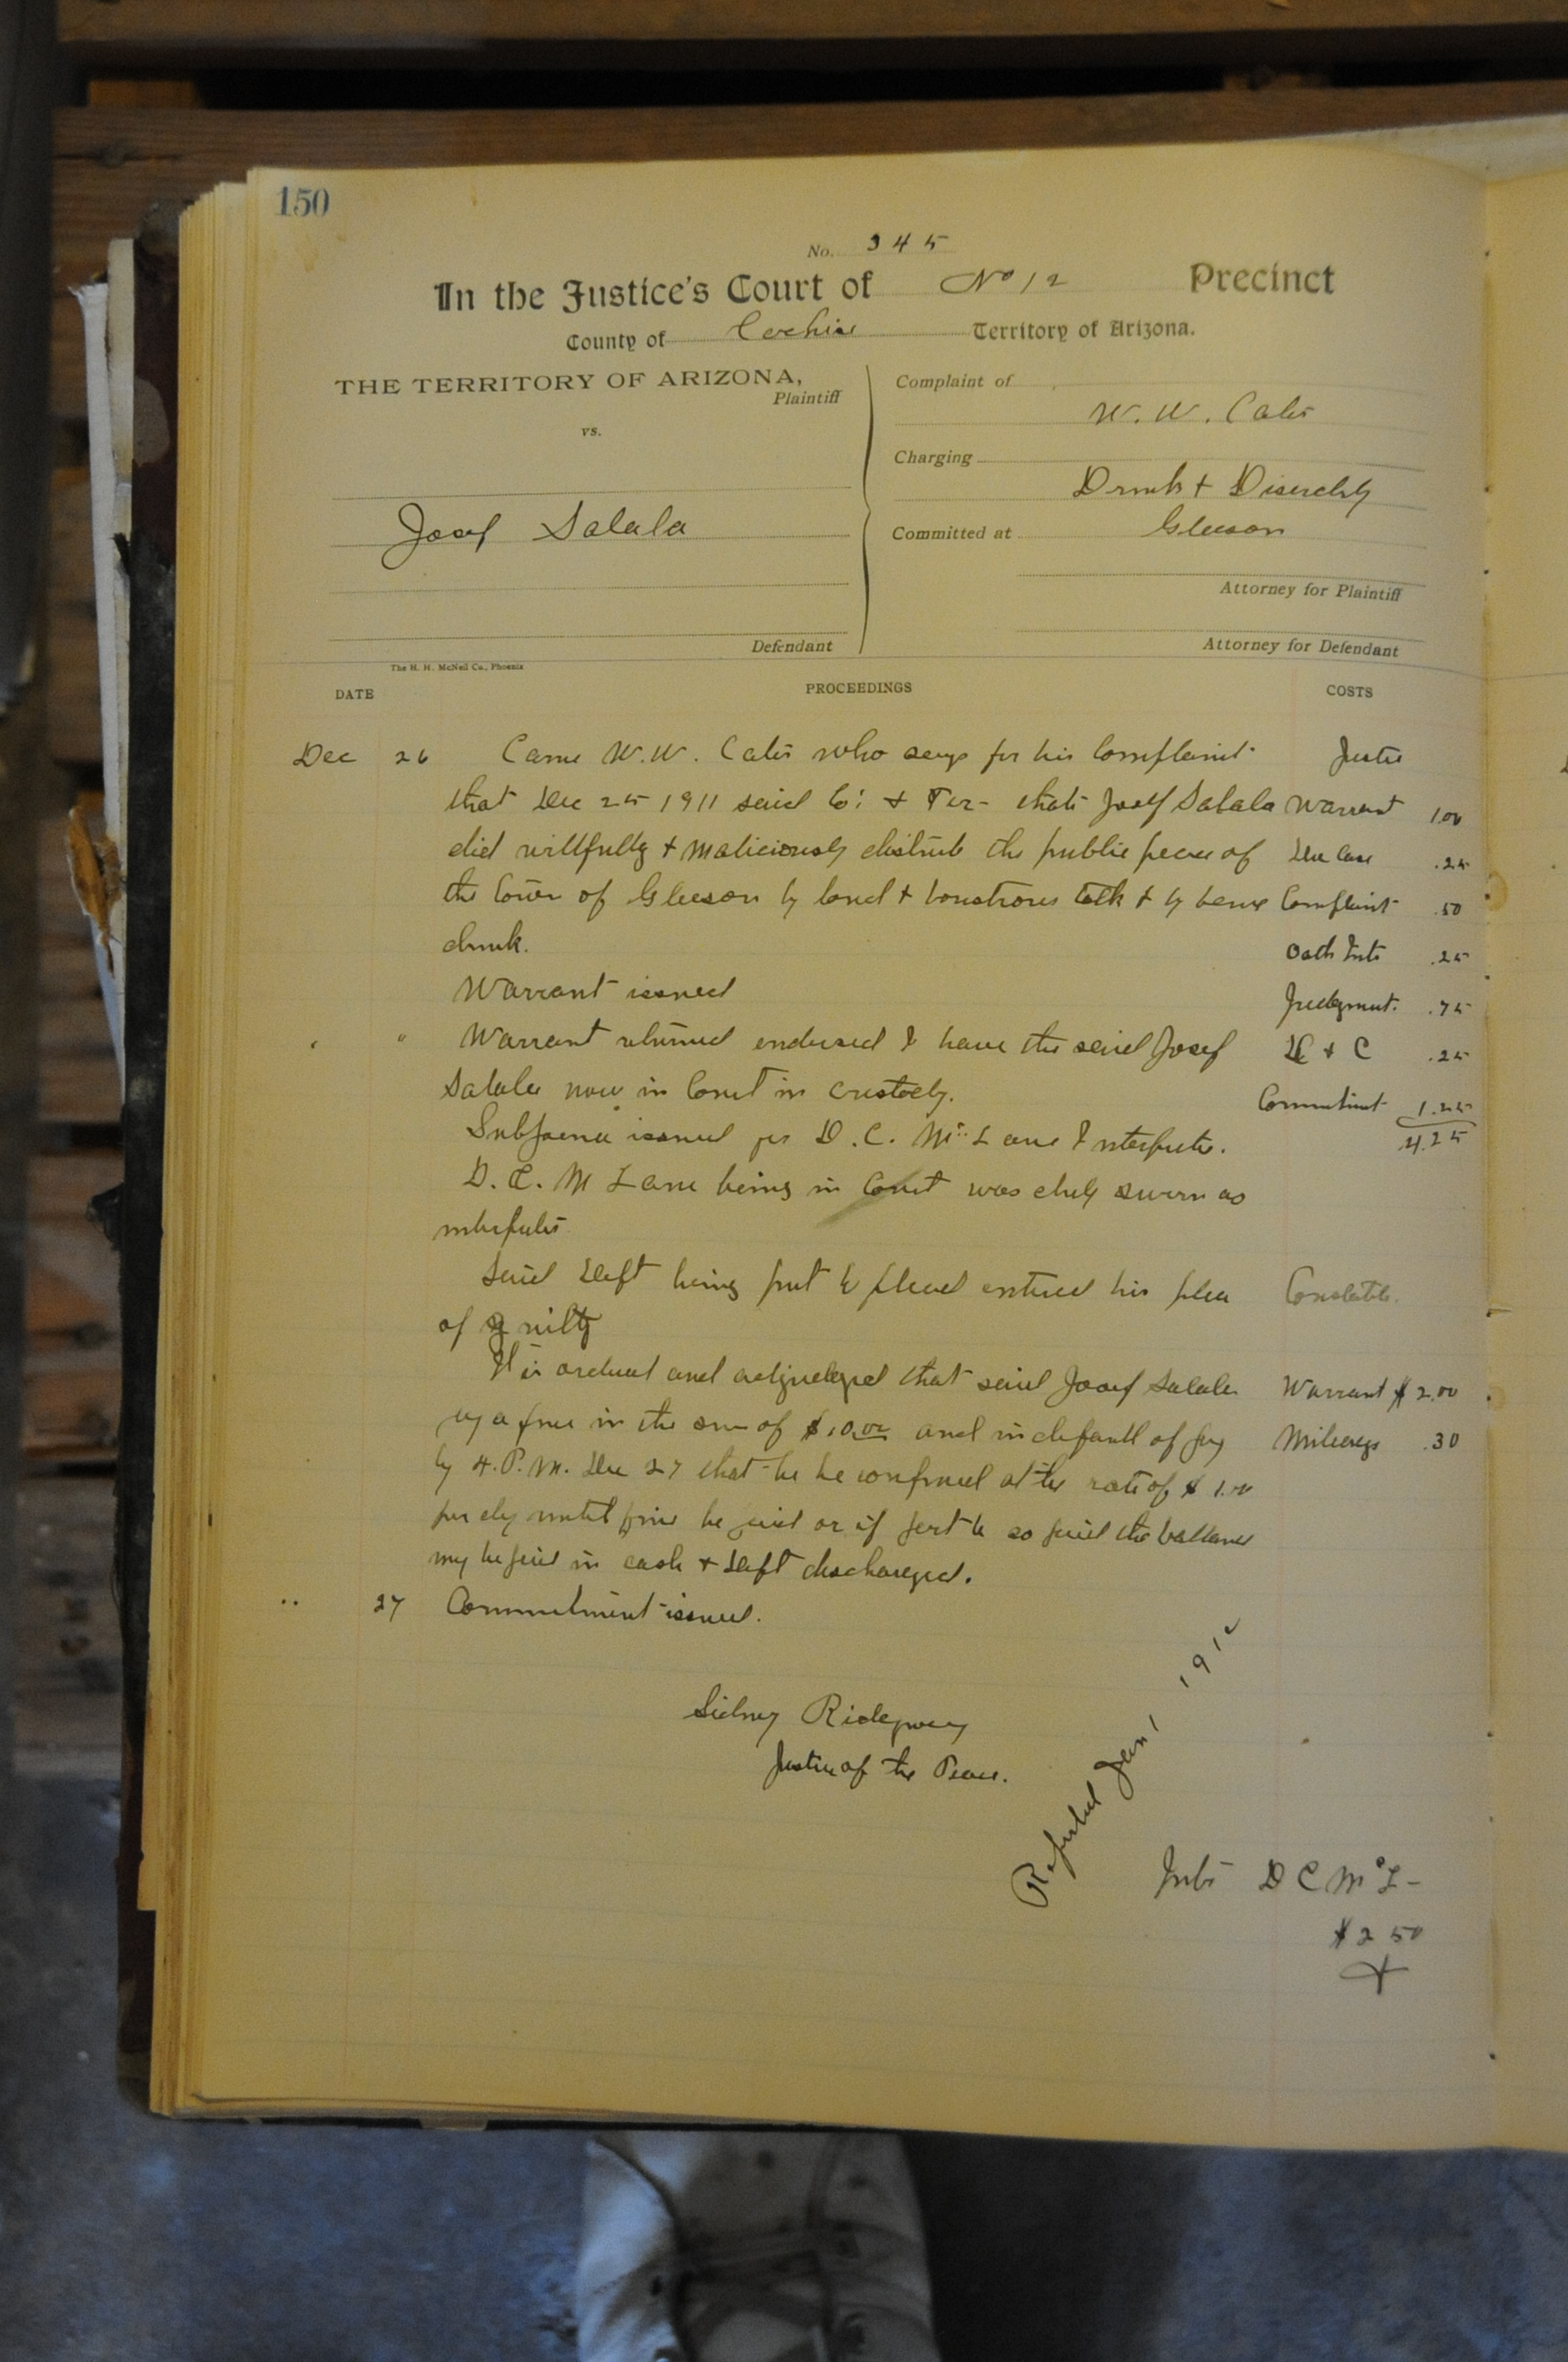 150
No. 345
In the Justice's Court of No 12 Precinct
County of Cochise Territory of Arizona.
THE TERRITORY OF ARIZONA,
Plaintiff
vs.
Josef Salala
Defendant
Complaint of
W. W. Cates
Charging
Drunk + Disorderly
Committed at Gleeson
Attorney for Plaintiff
Attorney for Defendant
The H. H. McNeil Co., Phoenix
DATE PROCEEDINGS COSTS
Dec 26 Came W. W. Cates who says for his Complaint Justice
that Dec 25 1911 said Co: + Ter- that Josef Salala Warrant 1.00
did willfully + maliciously disturb the public peace of Doc Case .25
the town of Gleeson by loud + boustrous talk + by being Complaint .50
drunk. Oath Inte .25
Warrant issued Judgment. .75
" " Warrant returned endorsed I have the said Josef D + C .25
Salala now in Court in custody. Commitment 1.25
4.25
Subpoena issued for D. C. McLane Interpreter.
D. C. McLane being in Court was duly sworn as
interpreter
Said Deft being put to plead entered his plea Constable
of guilty
It is ordered and adjudged that said Josef Salala Warrant $ 2.00
pay a fine in the sum of $10.00 and in default of pay Mileage .30
by 4. P. M. Dec 27 that he be confined at the rate of $ 1.00
per day until fine be paid or if part be so paid the ballance
may be paid in cash + Deft discharged.
" 27 Commitment issued.
Sidney Ridgway
Justice of the Peace.
Reported Jan 1 1912
Inte D C McL-
$2 50